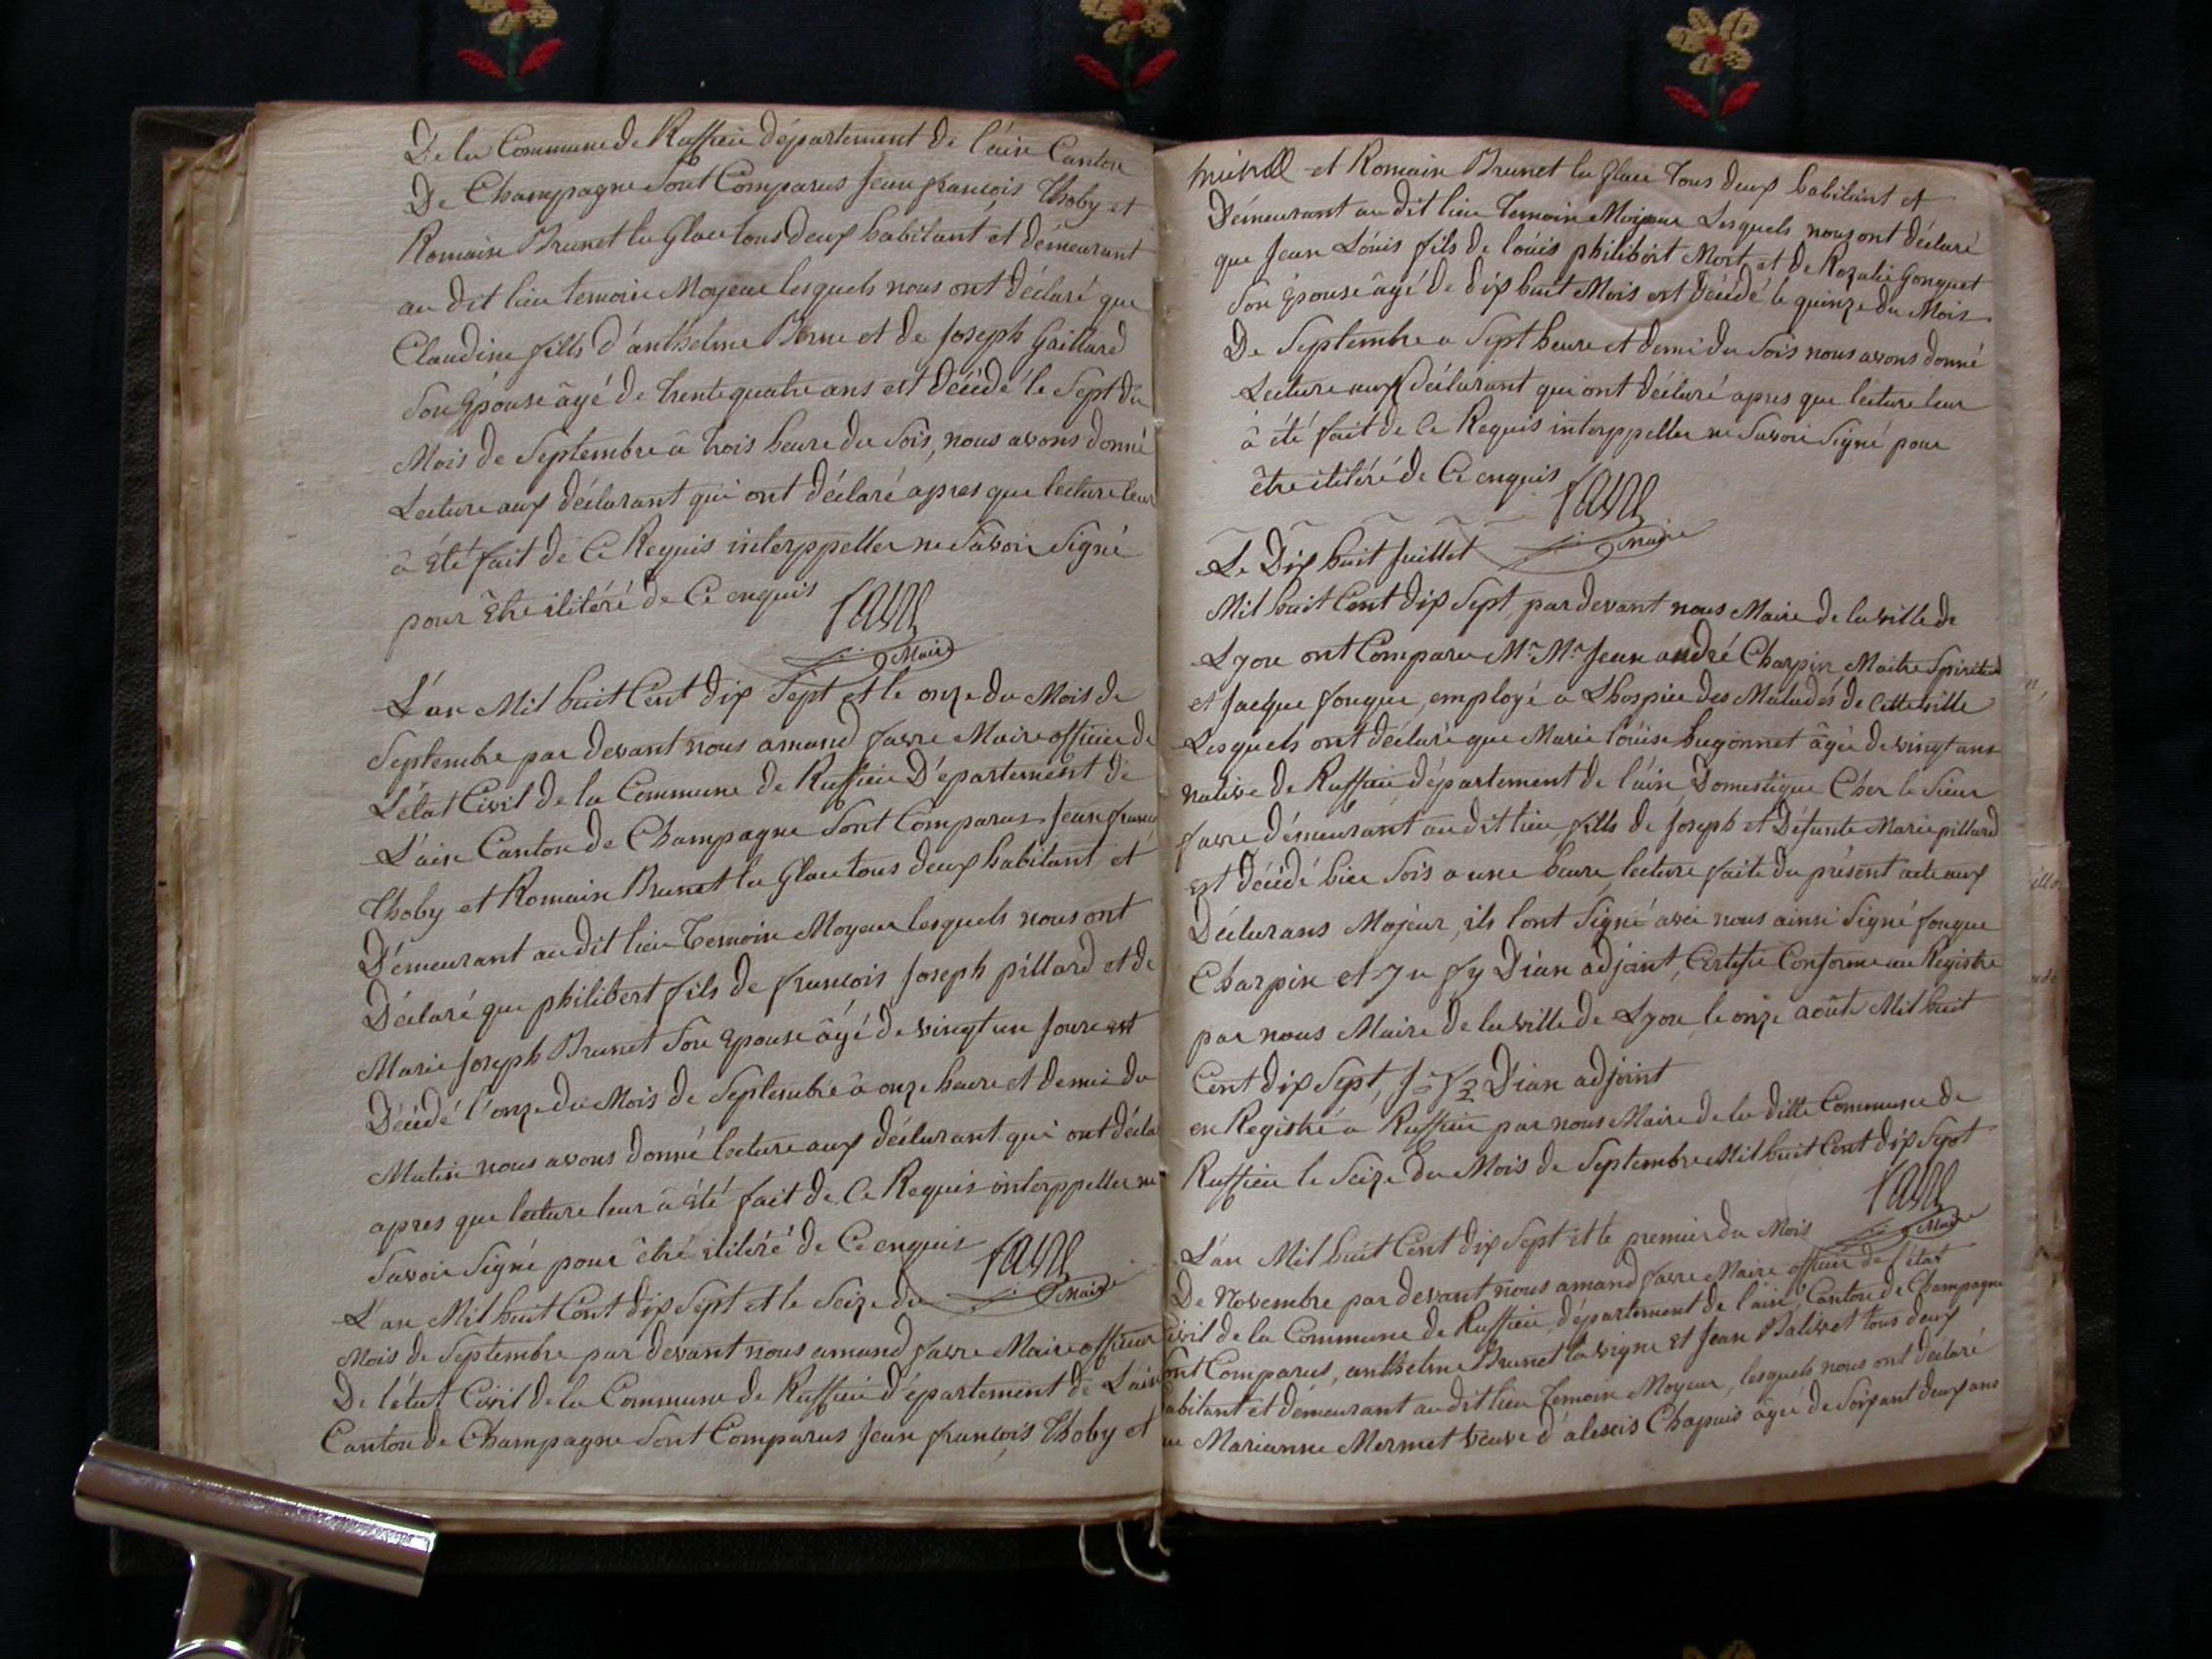 De la Commune de Ruffieu département de l'ain Canton
De Champagne Sont Comparus Jean françois Thoby et
Romain Brunet la Glace tous deux habitant et démeurant
au dit lieu temoin Mayeur lesquels nous ont déclaré que
Claudine fille d'anthelme Berne et de Joseph Gaillard
Son Epouse âgé de trente quatre ans est décédé le Sept du
Mois de Septembre à trois heure du Soir, nous avons donné
Lecture aux déclarant qui ont déclaré apres que lecture leur
à été fait de Ce Requis interppeller ne Savoir Signé
pour être ilitéré de Ce enquis
favre
Maire
L'an Mil huit Cent dix Sept et le onze du Mois de
Septembre par devant nous amand favre Maire officier de
L'état Civil de la Commune de Ruffieu Département de
L'ain Canton de Champagne Sont Comparus Jean françois
Thoby et Romain Brunet la Glace tous deux habitant et
Démeurant au dit lieu Temoin Moyeur lesquels nous ont
Déclaré que philibert fils de françois Joseph pillard et de
Marie Joseph Brunet Son Epouse âgé de vingt un Jour est
Décédé l'onze du Mois de Septembre à onze heure et demi du
Matin nous avons donné lecture aux déclarant qui ont décla
apres que lecture leur à été fait de Ce Requis interppeller ne
Savoir Signé pour être ilitéré de Ce enquis
favre
Maire
L'an Mil huit Cent dix Sept et le Seize du
Mois de Septembre par devant nous amand favre Maire officier
De l'état Civil de la Commune de Ruffieu département de L'ain
Canton de Champagne Sont Comparus Jean françois Thoby et
et Romain Brunet la Glace Tous deux habitant et
Démeurant au dit lieu Temoin Mojeur Lesquels nous ont déclaré
que Jean Loúis fils de loúis philibert Mort et de Rozalie Gonguet
Son Epouse âgé de dix huit Mois est décédé le quinze du Mois
De Septembre a Sept heure et demi du Soir nous avons donné
Lecture aux déclarant qui ont déclaré apres que lecture leur
à été fait de Ce Requis interppeller ne Savoir Signé pour
être ilitéré de Ce enquis
favre
Maire
Le Dix huit Juillet
Mil huit Cent dix Sept, par devant nous Maire de la ville de
Lyon ont Comparu Mr. Mr. Jean andré Charpin Maitre Spirituel
et Jacque fouque, employé a Lhospice des Malades de Cette ville
Lesquels ont déclaré que Marie loúise hugonnet âgée de vingt ans
native de Ruffieu, département de l'ain Domestique Cher le Sieur
favre démeurant au dit lieu, fille de Joseph et Défunte Marie pillard
est décédé hier Soir a une heure, lecture faite du présent acte aux
Déclarans Majeur, ils lont Signé avec nous ainsi Signé fouque
Charpin et Dian adjoint, Certifie Conforme au Registre
par nous Maire de la ville de Lyon le onze août Mil huit
Cent dix Sept, Dian adjoint
en Registré a Ruffieu par nous Maire de la ditte Commune de
Ruffieu le Seize du Mois de Septembre Mil huit Cent dix Sept
favre
Maire
L'an Mil huit Cent dix Sept et le premier du Mois
De Novembre par devant nous amand favre Maire officier de l'état
Civil de la Commune de Ruffieu, département de l'ain, Canton de Champagne
Sont Comparus, anthelme Brunet la vigne et Jean Balivet tous deux
habitant et démeurant au dit lieu Temoin Moyeur, lesquels nous ont déclaré
que Marianne Mermet veuve d'alexis Chapuis âgée de Soixant deux ans